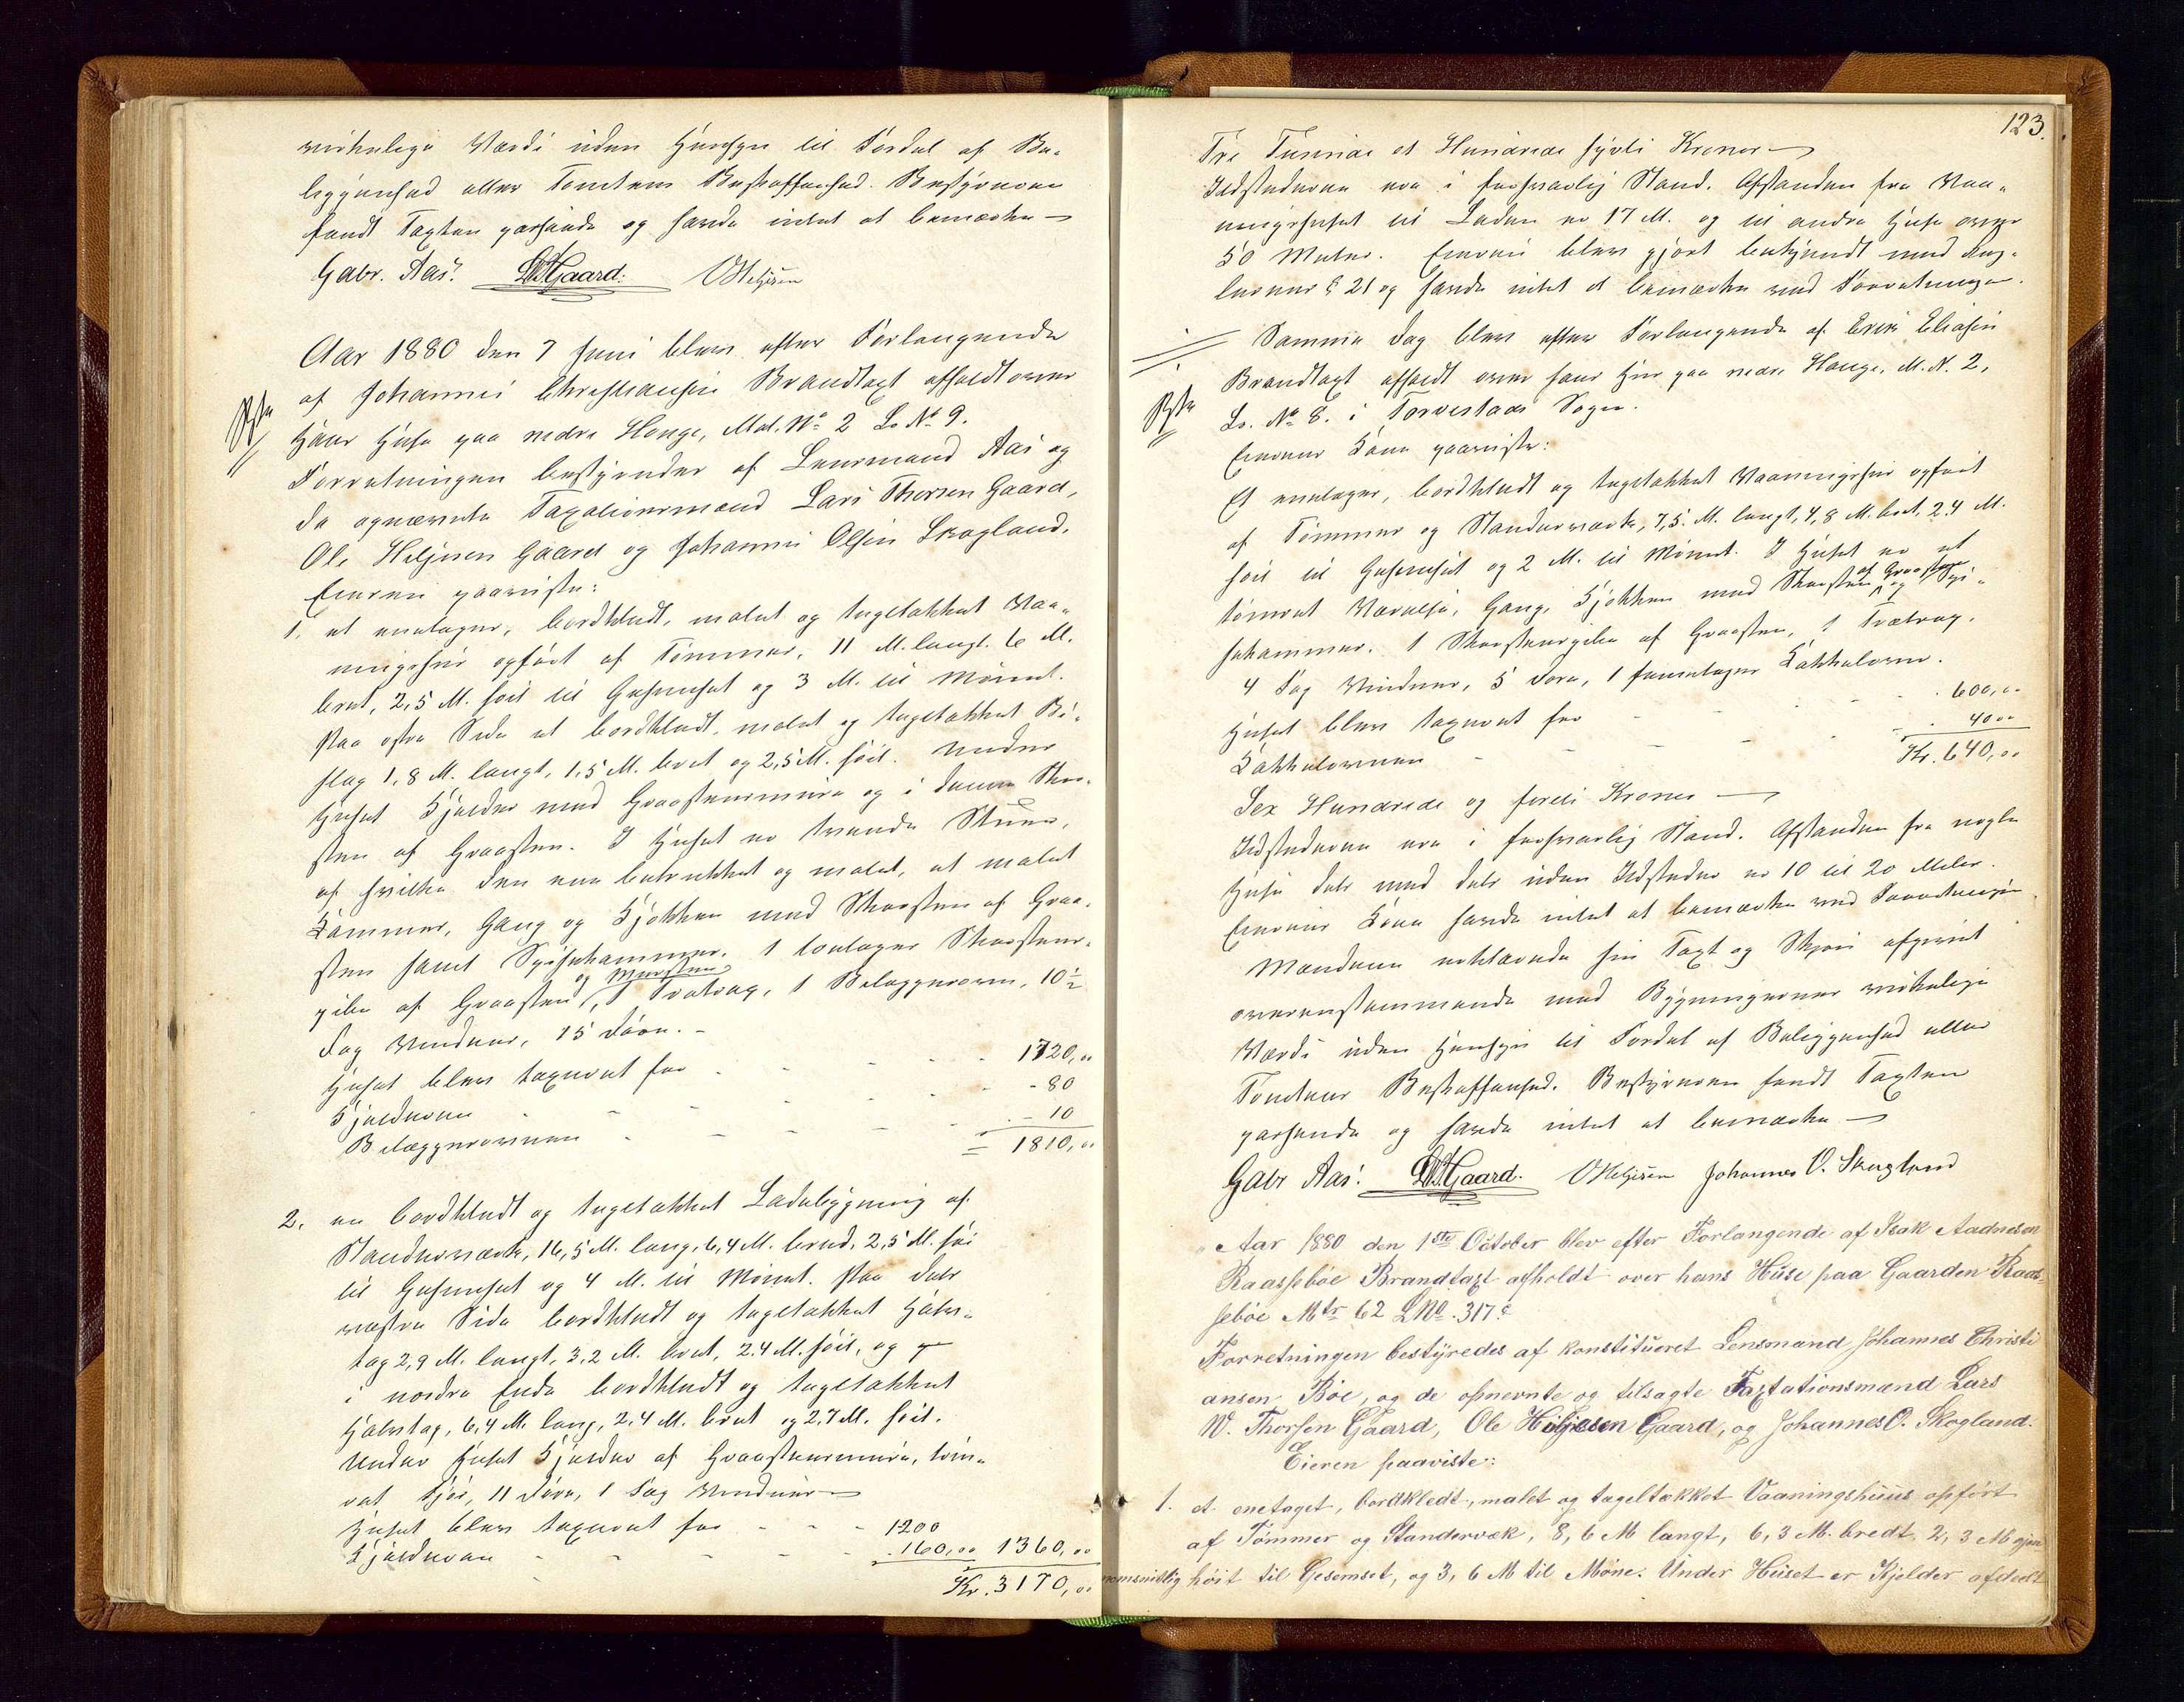 virkelige Værdi uden Hensyn til Fordel af Be-
liggenhed eller Tomtens Beskaffenhed. Bestyreren
fandt Taxten passende og havde intet at bemærke –
Gabr. Aas. LWTGaard. OHelgesen
Aar 1880 den 7 Juni blev efter Forlangende
af Johannes Christiansen Brandtaxt afholdt over
hans Huse paa nedre Hauge, Mat. No 2 L. No 9.
Forretningen bestyredes af Lensmand Aas og
de opnævnte Taxationsmænd Lars Thorsen Gaard,
Ole Helgesen Gaard og Johannes Olsen Skogland.
Eieren paaviste:
1. et enetages, bordklædt, malet og tagsteltækket Vaa-
ningshus opført af Tømmer, 11 M. langt. 6 M.
bredt, 2,5 M. høit til Gesemset og 3 M. til Mønet.
Paa østre Side et bordklædt, malet og tageltækket Bi-
slag 1,8 M. langt, 1,5 M. bredt og 2,5 M. høit. Under
Huset Kjelder med Graastensmure og i denne Skor-
sten af Graasten. I Huset er tvende Stuer,
af hvilke den ene betrukket og malet, et malet
Kammer, Gang og Kjøkken med Skorsten af Graa-
sten samt Spisekammer. 1 toetages Skorstens-
pibe af Graasten og Mursten, 1 Trætrap, 1 Belæggerovn, 10 1/2
Fag Vinduer, 15 Døre. –
Huset blev taxeret for - - - 1720,00
Kjelderen - - - - 80
Belæggerovnen - - - - 10
= 1810,00
2. en bordklædt og tageltækket Ladebygning af
Standerværk, 16,5 M. lang, 6,4 M. bred, 2,5 M. høi
til Gesemset og 4 M. til Mønet. Paa dets
vestre Side bordklædt og tageltækket Halv-
tag 2,9 M. langt, 3,2 M. bredt, 2,4 M. høit, og
i nordre Ende bordklædt og tageltækket
Halvtag, 6,4 M. lang, 2,4 M. bredt og 2,7 M. høit.
Under Huset Kjelder af Graastensmure, tøm-
ret Fjøs, 11 Døre, 1 Fag Vinduer –
Huset blev taxeret for - - - 1200
Kjelderen - - - - 160,00 1360,00
Kr. 3170,00
123.
Tre Tusinde et Hundrede sytti Kroner –
Ildstederne ere i forsvarlig Stand. Afstanden fra Vaa-
ningshuset til Laden er 17 M. og til andre Huse over
50 Meter. Eieren blev gjort bekjendt med Lag-
lovens § 21 og havde intet at bemærke ved Forretningen.
Samme Dag blev efter Forlangende af Erik Eliasen
Brandtaxt afholdt over hans Hus paa nedre Hauge, M. N. 2,
L. No 8. i Torvestads Sogn.
Eierens Kone paaviste:
Et enetages, bordklædt og tageltækket Vaaningshus opført
af Tømmer og Standerværk, 7,5 M. langt, 4,8 M. bredt, 2,4 M.
høit til Gesemset og 2 M. til Mønet. I Huset er et
tømret Værelse, Gang, Kjøkken med Skorsten af Graasten og Spi-
sekammer. 1 Skorstenspibe af Graasten, 1 Trætrap,
4 Fag Vinduer, 5 Døre, 1 femetages Kakkelovn.
Huset blev taxeret for - - - 600,00
Kakkelovnen - - - - 40 00
Kr. 640,00
Sex Hundrede og forti Kroner –
Ildstederne ere i forsvarlig Stand. Afstanden fra nogle
Huse dels med dels uden Ildsteder er 10 til 20 Meter.
Eierens Kone havde intet at bemærke ved Forretningen
Mændene erklærede sin Taxt og Skjøn afgivet
overensstemmende med Bygningernes virkelige
Værdi uden Hensyn til Fordel af Beliggenhed eller
Tomtens Beskaffenhed. Bestyreren fandt Taxten
passende og havde intet at bemærke –
Gabr Aas. LWTGaard. OHelgesen Johannes O. Skogland
Aar 1880 den 1ste October blev efter Forlangende af Isak Aadnesen
Raassebøe Brandtaxt afholdt over hans Huse paa Gaarden Raas-
sebøe Mtr 62 LNo. 317c
Forretningen bestyredes af konstitueret Lensmand Johannes Christi
ansen Bøe, og de opnevnte og tilsagte Taxtationsmænd Lars
W. Thorsen Gaard, Ole Helgesen Gaard, og Johannes O. Skogland.
Eieren paaviste:
1. et enetaget, bordkledt, malet og tageltækket Vaaningshuus opført
af Tømmer og Standervæk, 8,6 M langt, 6,3 M. bredt, 2,3 M gjen
nemsnitlig høit til Gesemset, og 3,6 M til Møne. Under Huset er Kjelder afdelt